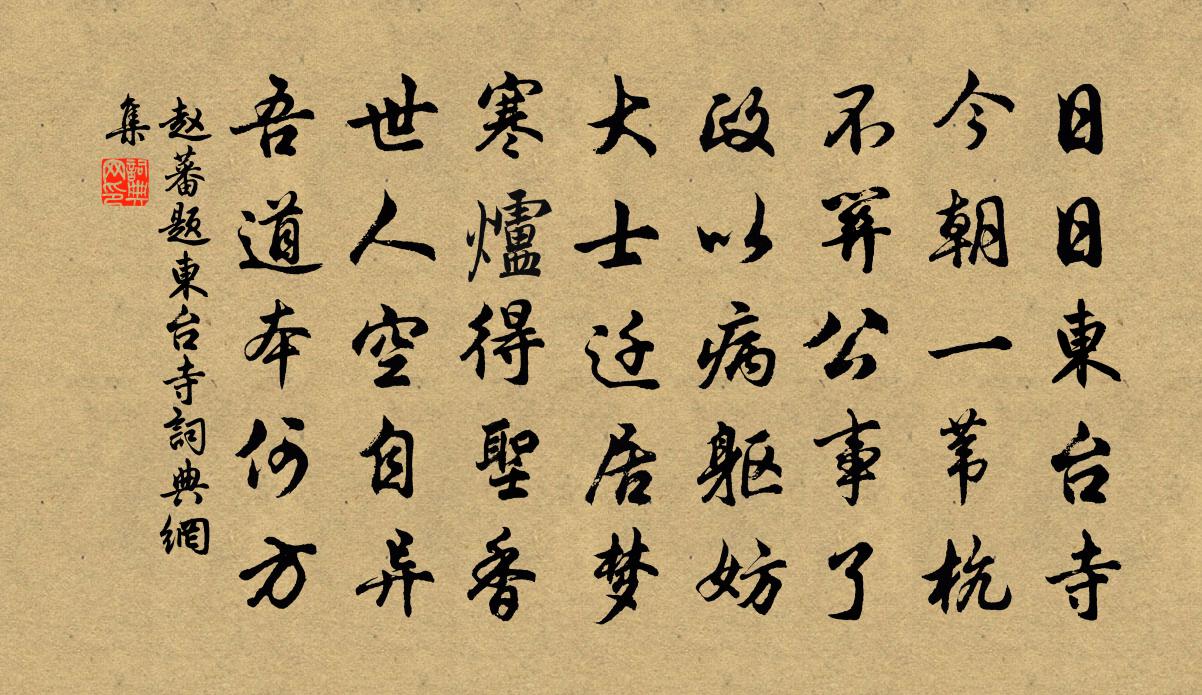 日日東台寺
今朝一苇杭
不算公事了
政以病躯妨
大士近居梦
寒爐得聖香
世人空自异
吾道本何方
赵蕃题東台寺詞典網
集
詞典
网印